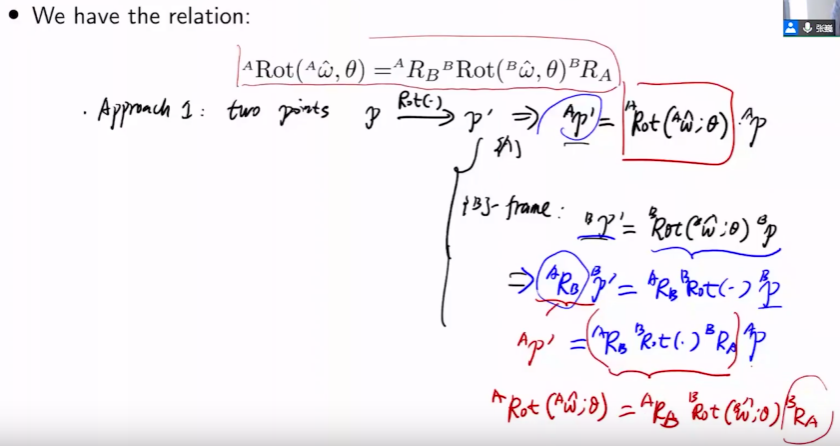 • We have the relation:
ᴬRot(ᴬω̂, θ) =ᴬR_B ᴮRot(ᴮω̂, θ)ᴮR_A
· Approach 1: two points p —Rot(·)→ p' ⇒ ᴬp' = ᴬRot(ᴬω̂; θ) · ᴬp
{A}
{B}-frame: ᴮp' = ᴮRot(ᴮω̂; θ) ᴮp
⇒ ᴬR_B ᴮp' = ᴬR_B ᴮRot(·) ᴮp
ᴬp' = (ᴬR_B ᴮRot(·) ᴮR_A) ᴬp
ᴬRot(ᴬω̂; θ) = ᴬR_B ᴮRot(ᴮω̂; θ) ᴮR_A